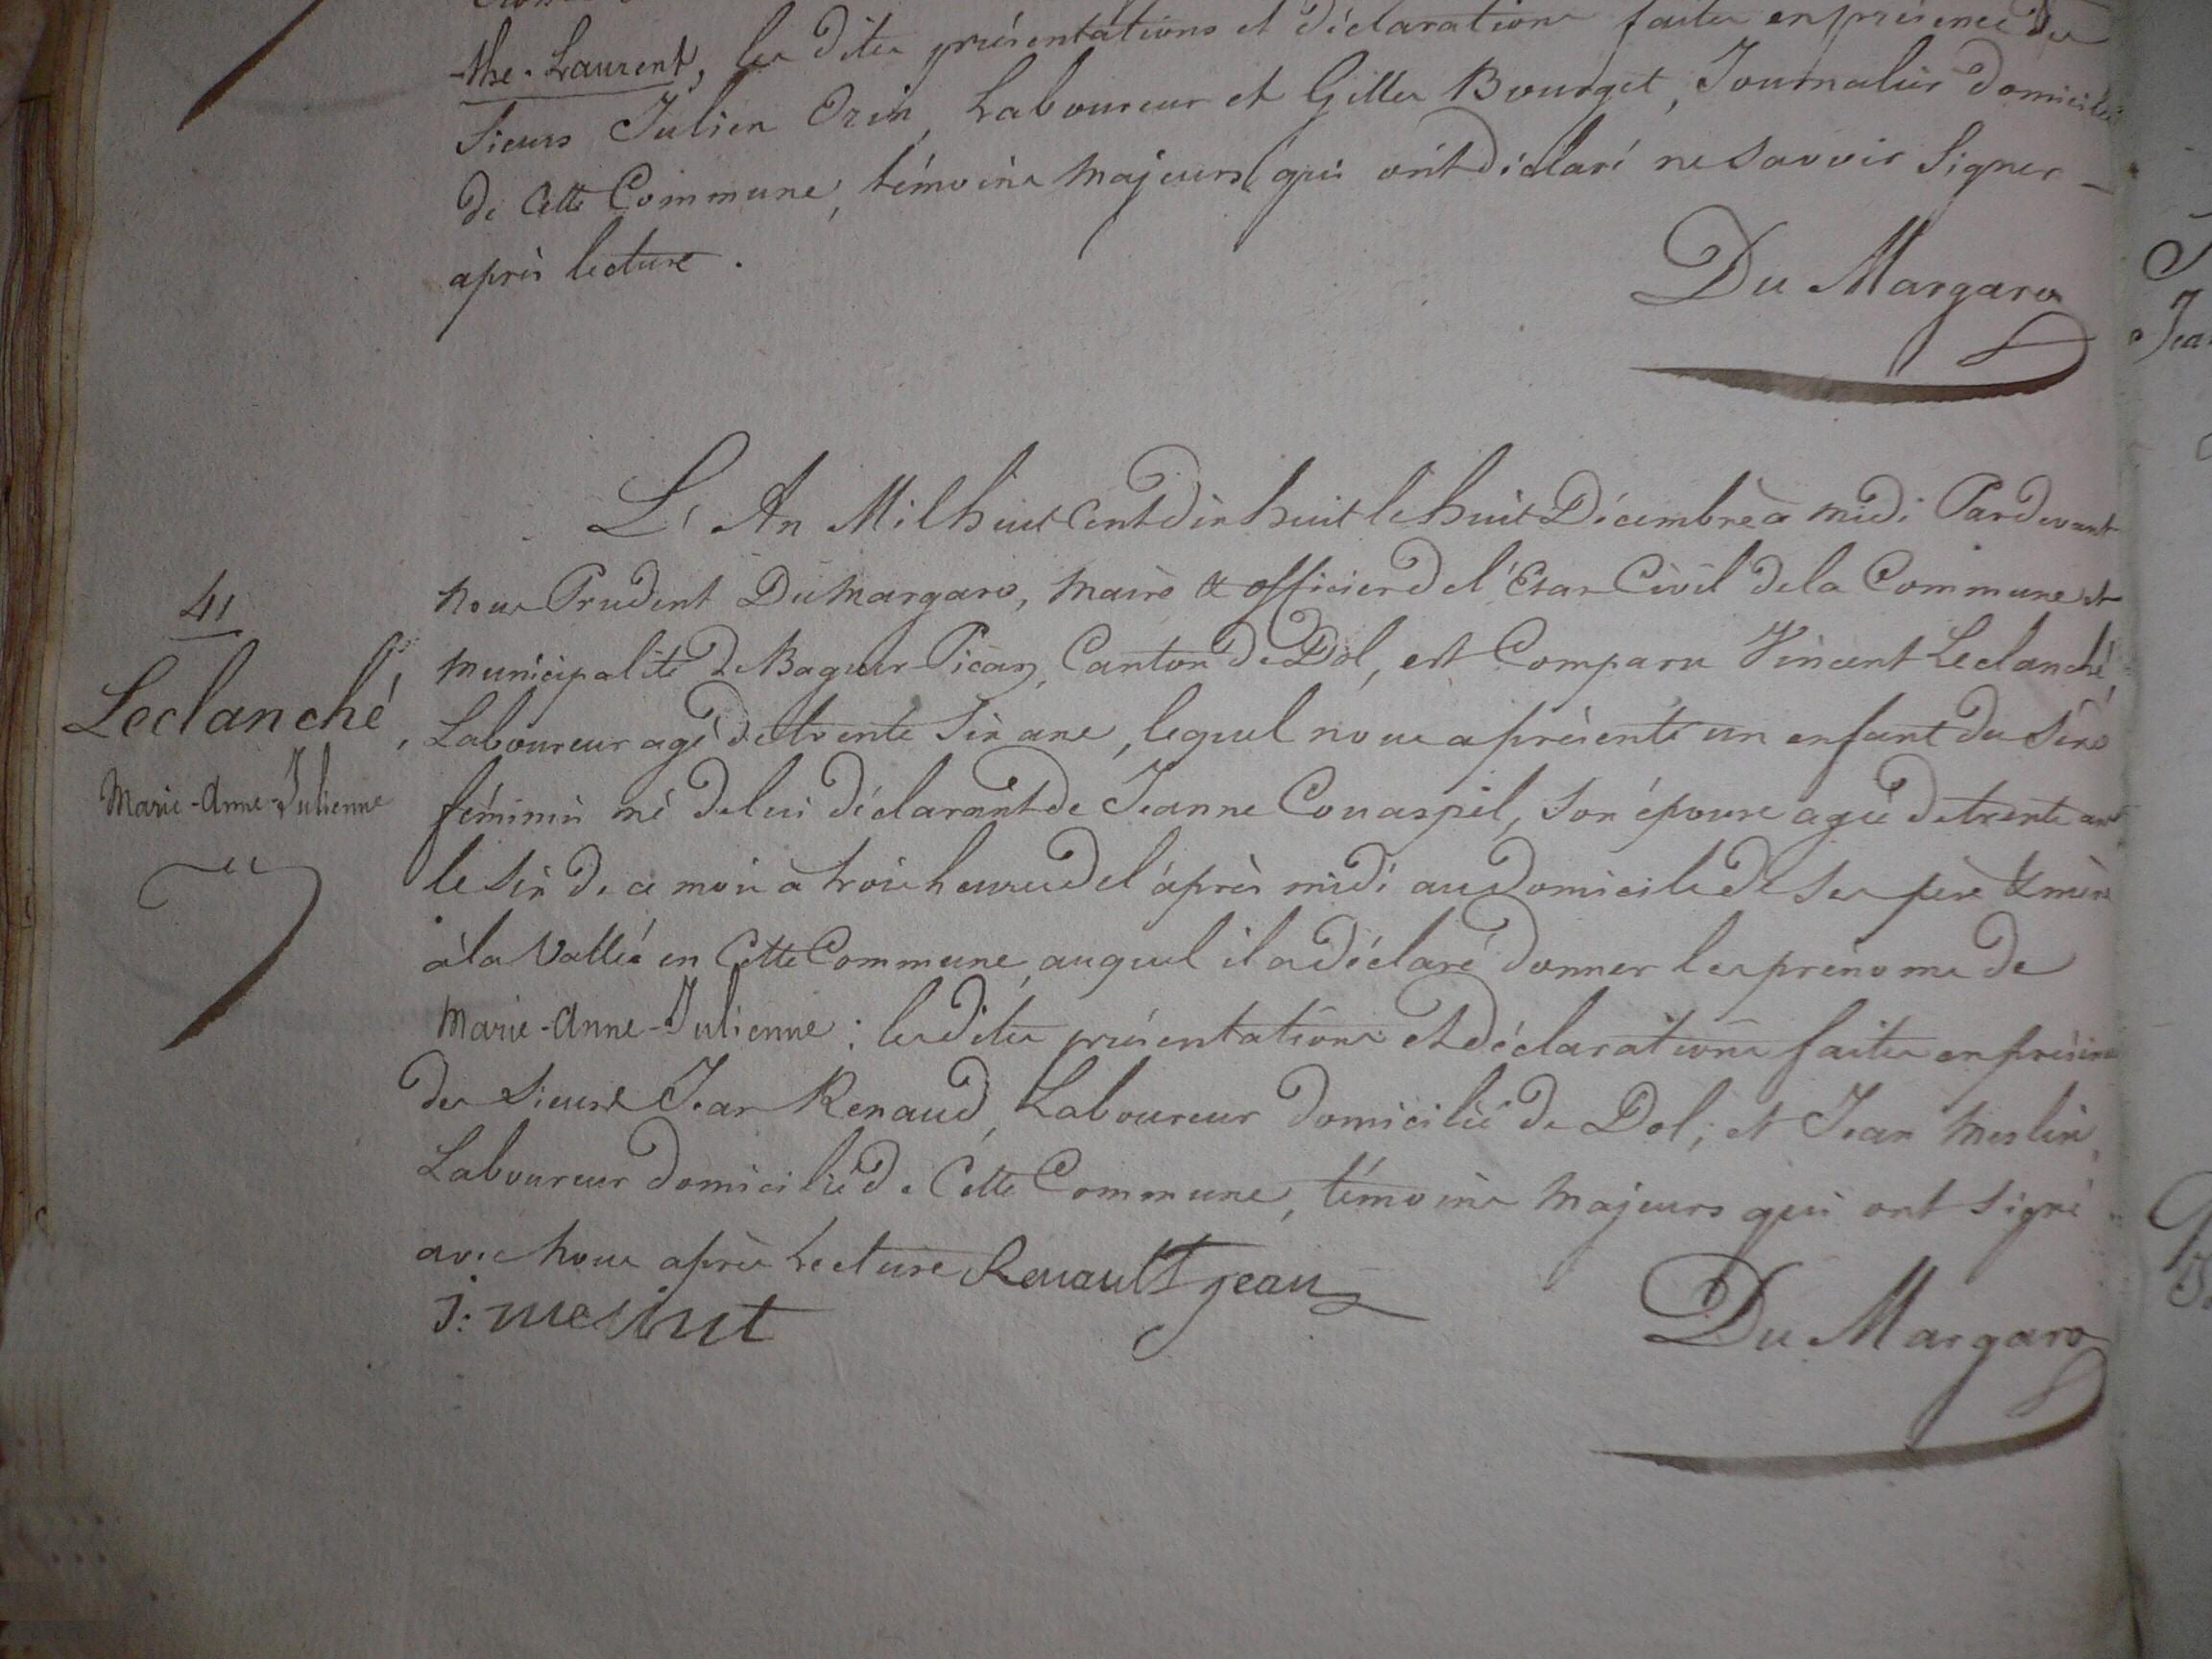 -the-Laurent, les dites présentations et déclarations faites en présence des
Sieurs Julien Orin, Laboureur et Gilles Bourget, Journalier domiciliés
de Cette Commune, témoins Majeurs qui ont déclaré ne Savoir Signer
après lecture.
Du Margaro
L'An Mil huit Cent dix huit le huit Décembre à midi Pardevant
Nous Prudent Du Margaro, Maire & officier de l'Etat Civil de la Commune et
Municipalité de Baguer Pican, Canton de Dol, est Comparu Vincent Leclanché,
Laboureur agé de trente Six ans, lequel nous a présenté un enfant du Sexe
féminin né de lui déclarant de Jeanne Couaspel, Son épouse agée de trente ans
le Six de ce mois à trois heures de l'après midi au domicile de Ses père & mère
à la Vallée en Cette Commune, auquel il a déclaré donner les prénoms de
Marie-Anne-Julienne : les dites présentations et déclarations faites en présence
des Sieurs Jean Renaud, Laboureur domicilié de Dol; et Jean Meslin,
Laboureur domicilié de Cette Commune, témoins Majeurs qui ont Signé
avec Nous après Lecture Renault jean
Du Margaro
41
Leclanché,
Marie-Anne-Julienne